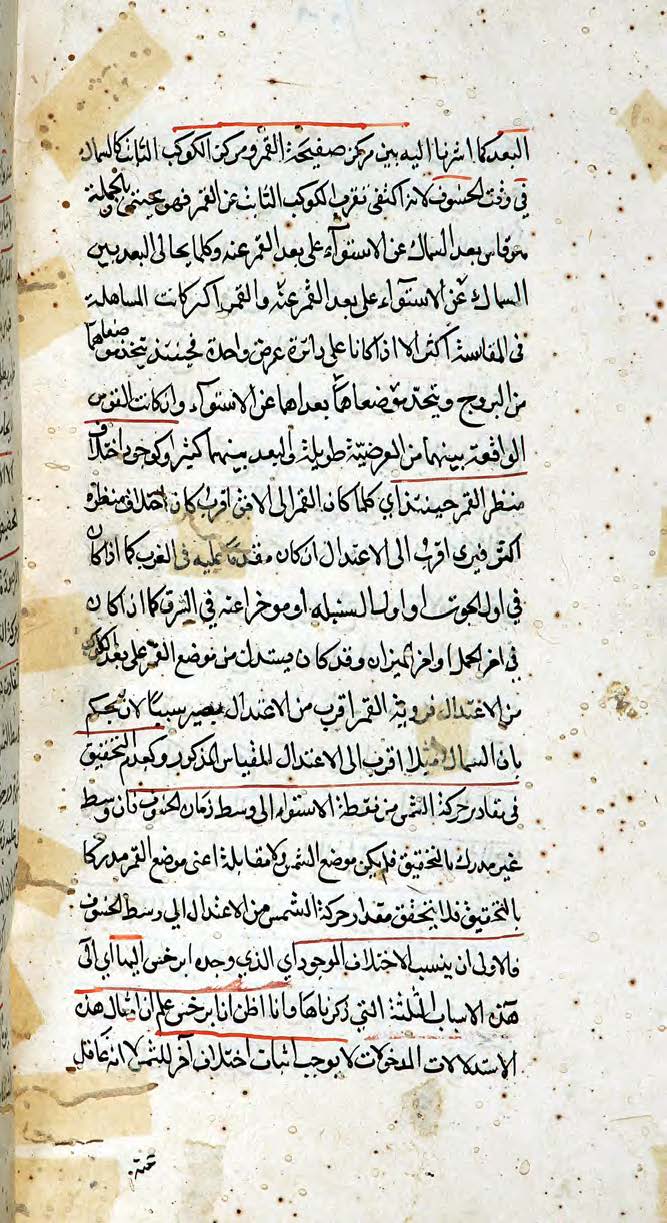 البعد كما اشرنا اليه بين مركز صفيحة القمر ومركز الكوكب الثابت كالسماك
في وقت الخسوف لانه اكتفى بقرب الكوكب الثابت عن القمر فهو بالجملة
بعد السماك عن الاستوآء على بعد القمر عنه وكلما البعد بين
السماك عن الاستوآء على بعد القمر عنه والقمر اكثر كانت المساهلة
في المقايسة اكثر الا اذا كانا على دائرة عرض واحدة فحينئذ يتحد موضعاهما
من البروج ويتحد بعداهما عن الاستوآء وان كانت القوس
الواقعة بينهما من العرضية طويلة والبعد بينهما كثيرا وكوجود اختلاف
منظر القمر حينئذ اي كلما كان القمر الى الافق اقرب كان اختلاف منظره
اكثر فيرى اقرب الى الاعتدال ان كان مقدما عليه في الغرب كما اذا كان
في اول الحوت او اول السنبلة او موخرا عنه في الشرق كما اذا كان
في اخر الحمل او اخر الميزان وقد كان يستدل من موضع القمر على بعد الكوكب
من الاعتدال فروية القمر اقرب من الاعتدال يصير سببا لان يحكم
بان السماك مثلا اقرب الى الاعتدال للمقياس المذكور وكعدم التحقيق
في مقادير حركة الشمس من نقطة الاستواء الى وسط زمان الخسوف فان وسط
غير مدرك بالتحقيق فلم يكن موضع الشمس ولا مقابله اعنى موضع القمر مدركا
بالتحقيق فلا يتحقق مقدار حركة الشمس من الاعتدال الى وسط الخسوف
فالاولى ان ينسب الاختلاف الموجود اي الذي وجده ابرخس اليها اي الى
هذه الاسباب الثلثة التي ذكرناها وانا اظن ان ابرخس علم ان امثال هذه
الاستدلالات المدخولات لا يوجب اثبات اختلاف آخر للشمس لا انه غافل
عنه